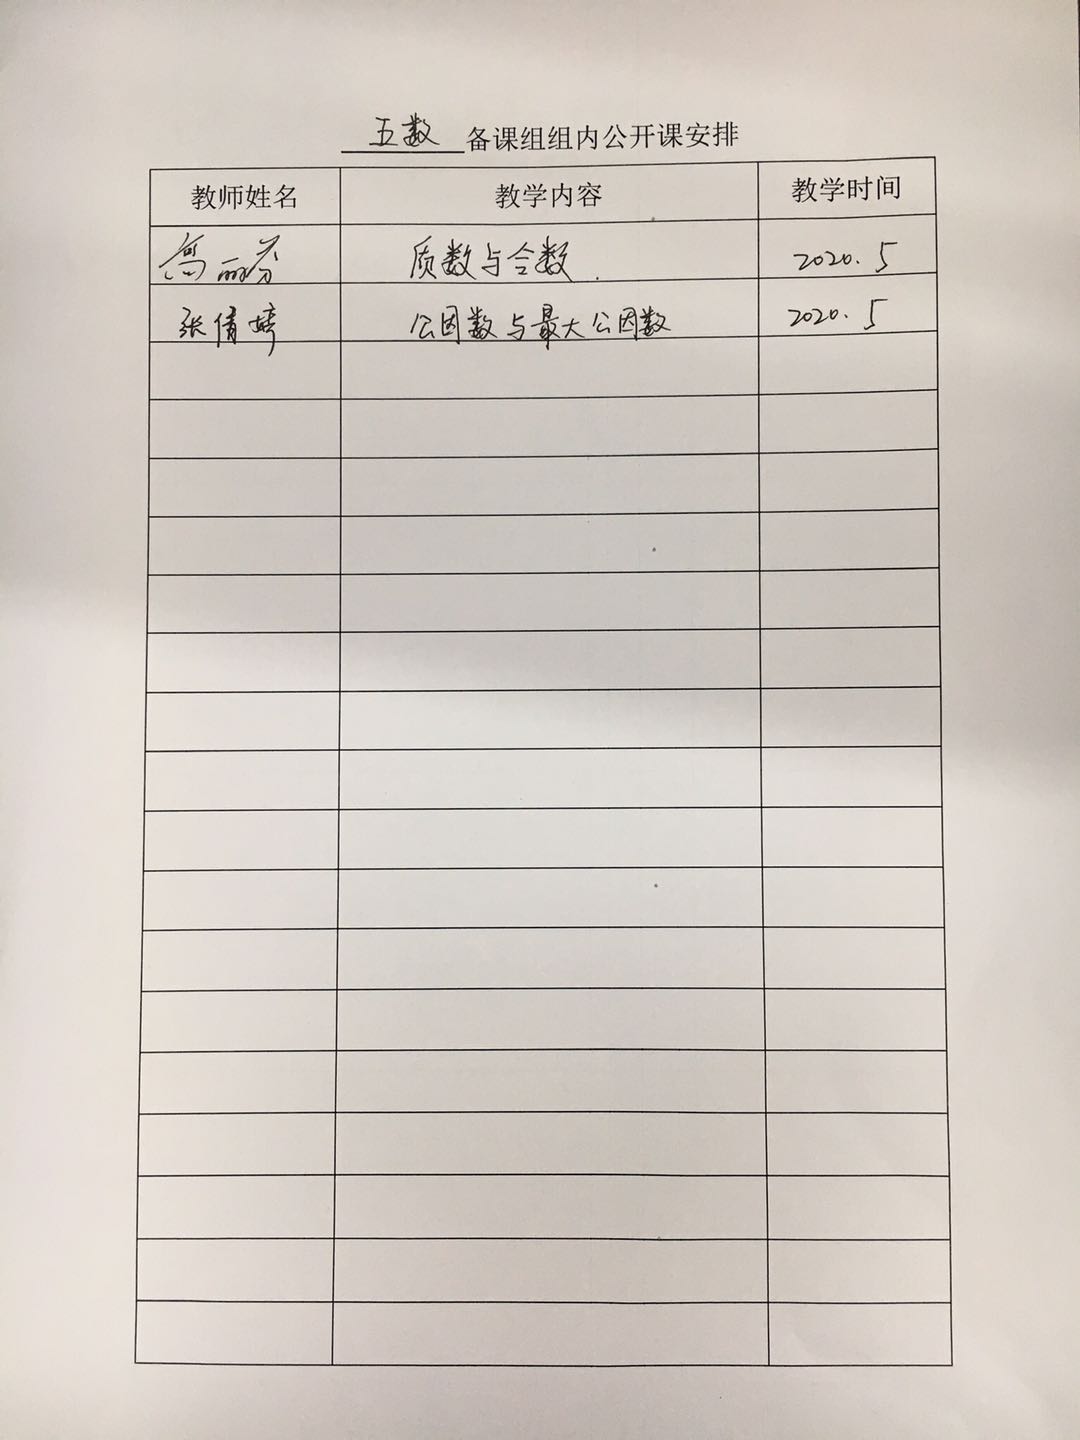 五数 备课组组内公开课安排
教师姓名 教学内容 教学时间
高丽芬 质数与合数 2020.5
张倩婷 公因数与最大公因数 2020.5